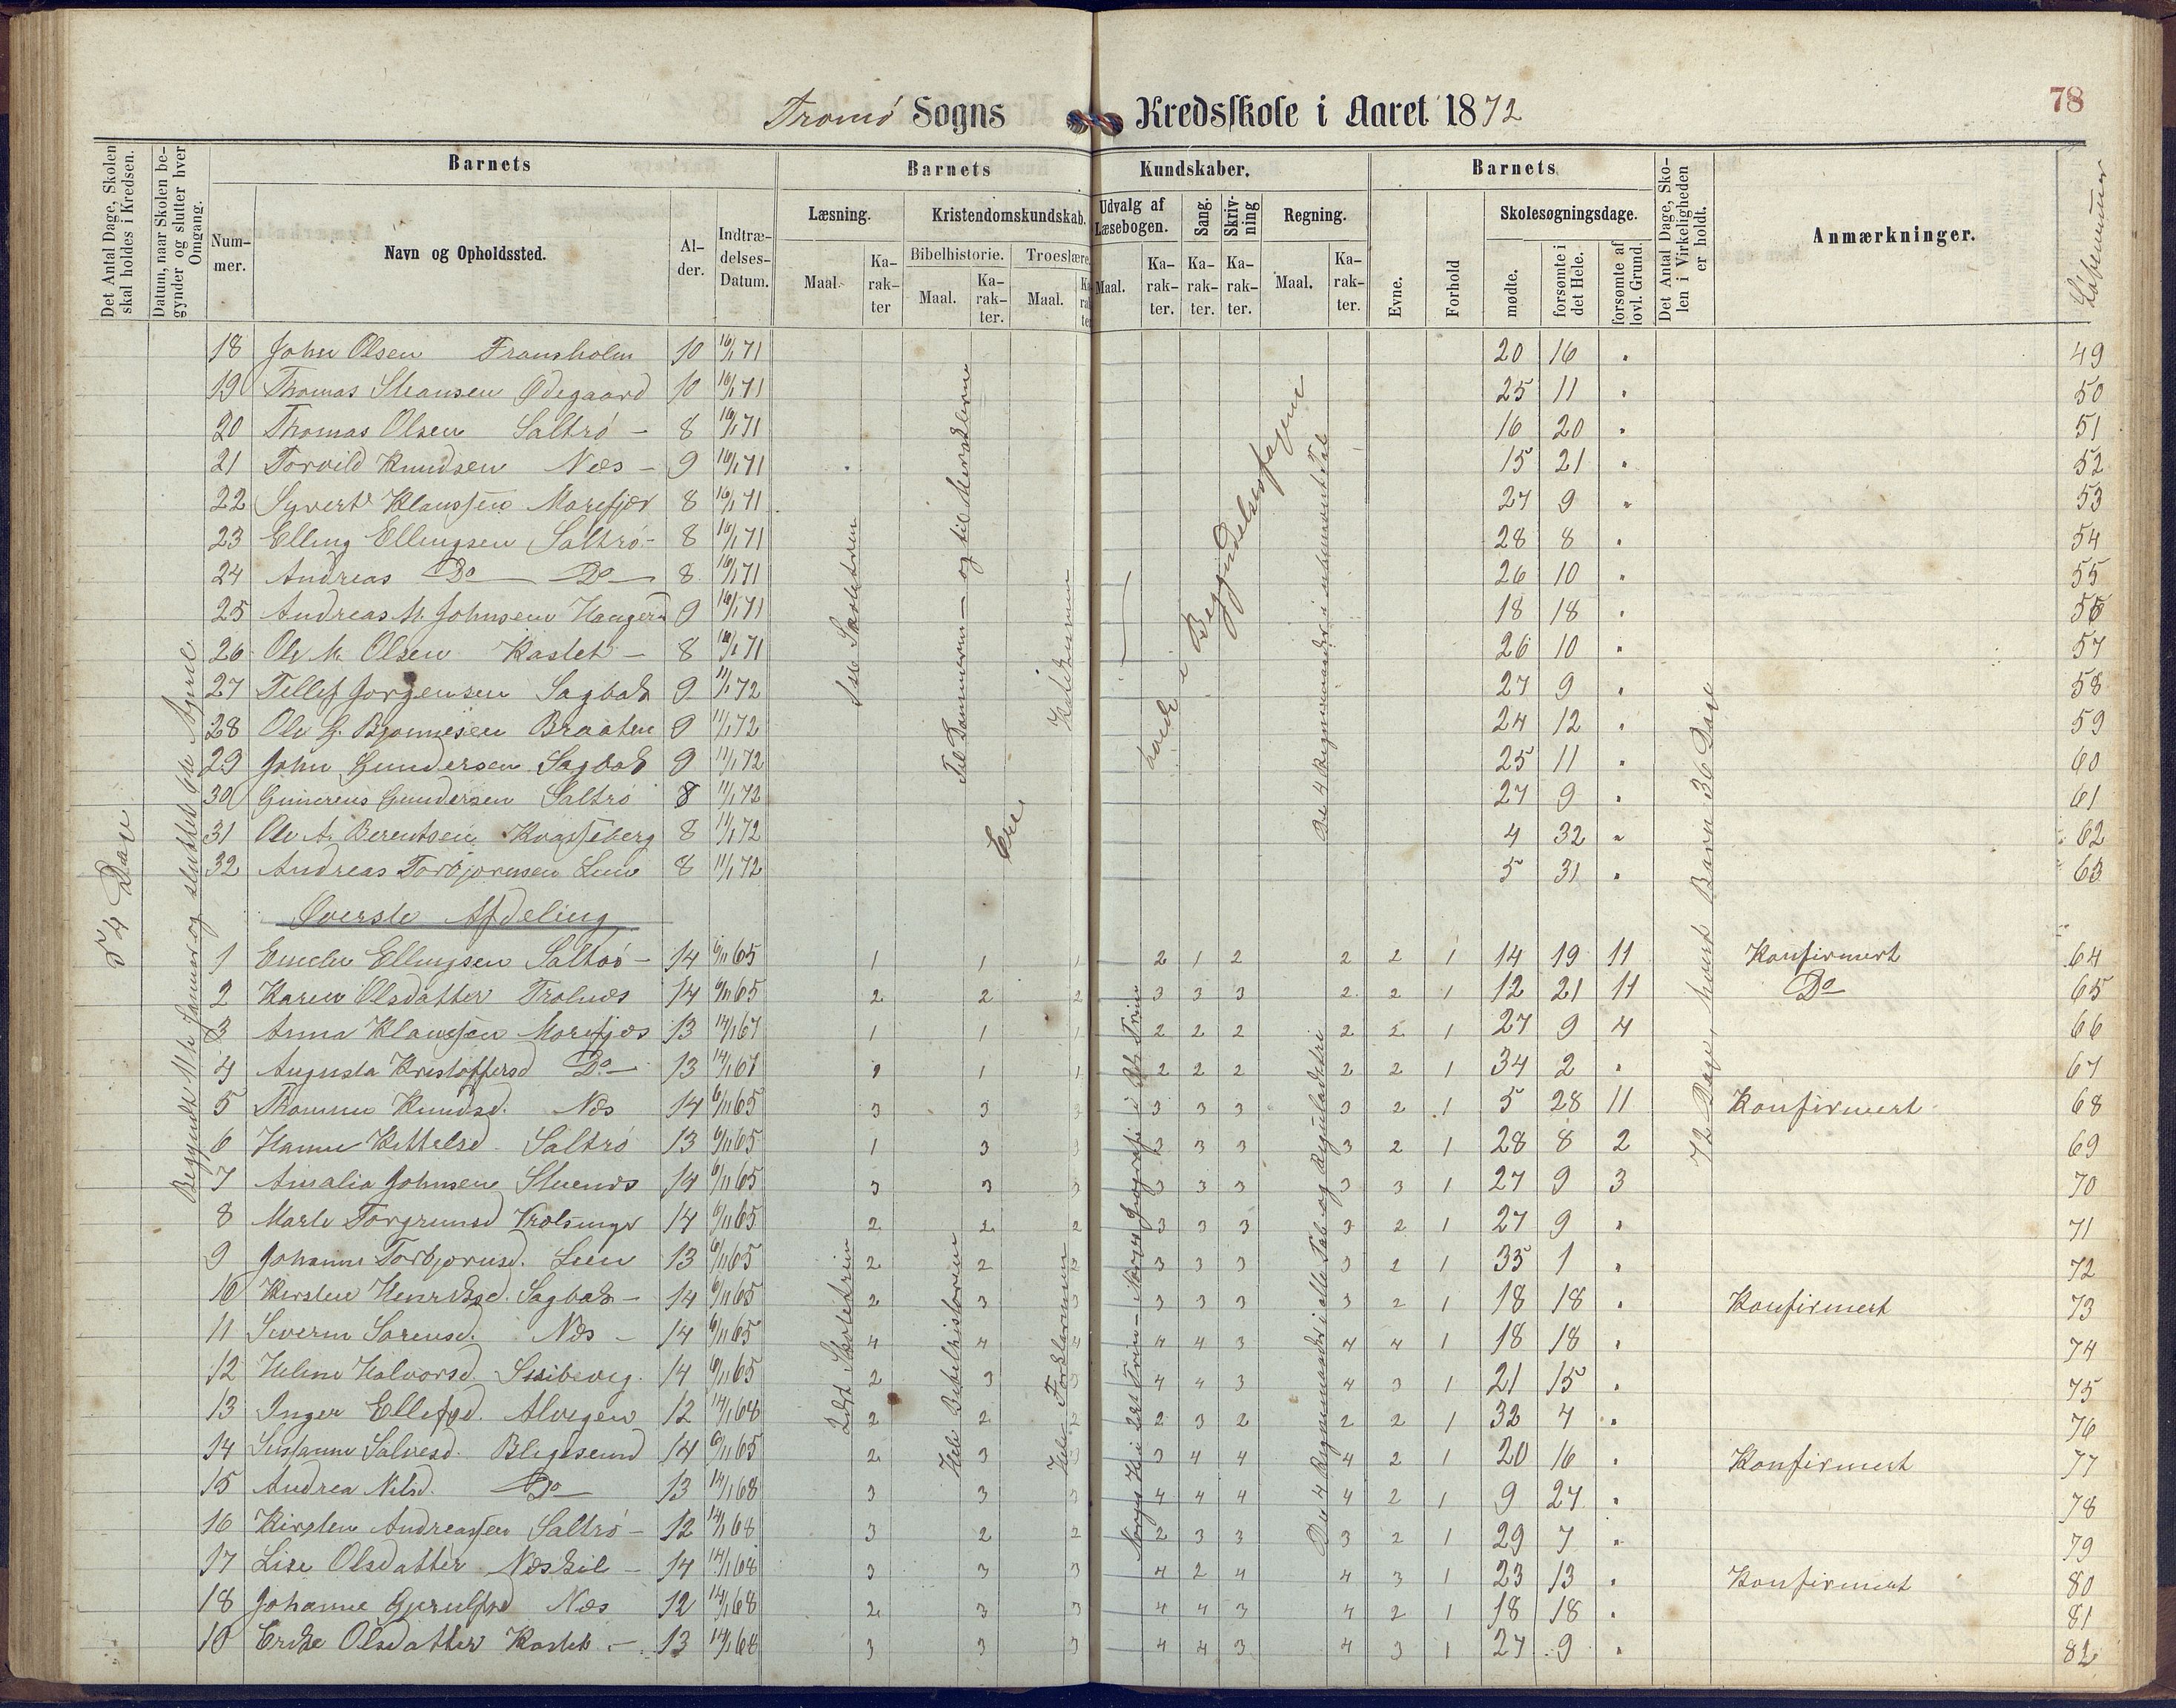 78
Tromö Sogns Kredsskole i Aaret 1872
Det Antal Dage, Skolen skal holdes i Kredsen.
Datum, naar Skolen begynder og slutter hver Omgang.
Barnets
Num-mer.
Navn og Opholdssted.
Al-der.
Indtræ-delses-Datum.
Barnets Kundskaber.
Læsning.
Maal.
Ka-rak-ter
Kristendomskundskab.
Bibelhistorie.
Maal.
Ka-rak-ter.
Troeslære.
Maal.
Udvalg af Læsebogen.
Maal.
Ka-rak-ter.
Sang.
Ka-rak-ter.
Skriv-ning
Ka-rak-ter.
Regning.
Maal.
Ka-rak-ter.
Barnets
Evne.
Forhold
Skolesøgningsdage.
mødte.
forsømte i det Hele.
forsømte af lovl. Grund.
Det Antal Dage, Sko-len i Virkeligheden er holdt.
Anmærkninger.
Löbenumer
54 Dage
Begyndt 11te Januar og sluttet 6te April.
72 Dage, hvert Barn 36 Dage
18 John Olsen Fransholm 10 16/1 71 20 16 " 49
19 Thomas Stiansen Ødegaard 10 16/1 71 25 11 " 50
20 Thomas Olsen Saltrö - 8 16/1 71 16 20 " 51
21 Torvild Knudsen Næs - 9 16/1 71 15 21 " 52
22 Syvert Klaussen Morefjær 8 16/1 71 27 9 " 53
23 Elling Ellingsen Saltrö - 8 16/1 71 28 8 " 54
24 Andreas Do Do 8 16/1 71 26 10 " 55
25 Andreas M. Johnsen 9 16/1 71 18 18 " 56
26 Ole M. Olsen Kastet - 8 16/1 71 26 10 " 57
27 Tellef Jorgensen Sagbak 9 11/1 72 27 9 " 58
28 Ole G. Bjonnesen Braaten 9 11/1 72 24 12 " 59
29 John Gundersen Sagbak 9 11/1 72 25 11 " 60
30 Gunerius Gundersen Saltrö 8 11/1 72 27 9 " 61
31 Ole A. Berentsen Kvasseberg 8 11/1 72 4 32 " 62
32 Andreas Torbjornsen Lien 8 11/1 72 5 31 " 63
Til Dommerne - og til Herskerne
Katekismen
i Begyndelsesfagene
De 4 Regningsmaader i ubenævnt Tal
Øverste Afdeling
1 Emelie Ellingsen Saltrö - 14 6/11 65 1 1 1 2 1 2 2 2 1 14 19 11 Konfirmert 64
2 Karen Olsdatter Trolnæs 14 6/11 65 2 2 2 3 3 3 2 2 1 12 21 11 Do 65
3 Anna Klaussen Morefjær 13 14/1 67 1 1 1 2 2 2 2 2 1 27 9 4 66
4 Augusta Kristoffersd Do 13 14/1 67 1 1 1 2 2 2 2 2 1 34 2 " 67
5 Thomine Knudsd. Næs 14 6/11 65 3 3 3 3 3 3 3 2 1 5 28 11 Konfirmert 68
6 Hanne Kittelsd. Saltrö 13 6/11 65 1 3 3 3 3 3 3 2 1 28 8 2 69
7 Amalia Johnsen Stuenes 14 6/11 65 3 3 3 3 3 3 3 3 1 27 9 3 70
8 Marte Torgrimsd 14 6/11 65 2 2 2 3 3 3 3 2 1 27 9 " 71
9 Johanne Torbjornsd. Lien 13 6/11 65 2 2 2 3 3 3 3 2 1 35 1 " 72
10 Kirsten Henriksd. Sagbak - 14 6/11 65 2 3 3 3 3 3 3 2 1 18 18 " Konfirmert 73
11 Severine Sorensd. Næs - 14 6/11 65 4 4 4 4 4 3 4 4 1 18 18 " 74
12 Heline Halvorsd. 14 6/11 65 2 3 3 4 4 3 4 3 1 21 15 " 75
13 Inger Ellefsd. Alvigen 12 14/1 68 2 2 2 2 3 2 2 2 1 32 4 " 76
14 Susanne Salvesd. Bligesund 14 6/11 65 2 3 3 3 4 4 4 2 1 20 16 " Konfirmert 77
15 Andrea Nilsd. Do 13 14/1 68 3 3 3 4 4 4 4 2 1 9 27 " 78
16 Kirsten Andreassen Saltrö - 12 14/1 68 3 2 2 2 3 3 3 2 1 29 7 " 79
17 Lise Olsdatter Næskil - 14 14/1 68 3 3 3 4 2 4 4 3 1 23 13 " Konfirmert 80
18 Johanne Gjerulfsd Næs 12 14/1 68 2 3 3 4 4 3 4 2 1 18 18 " 81
19 Erike Olsdatter Kastet - 13 14/1 68 3 3 3 4 4 3 4 3 1 27 9 " 82
2det Skoletrin
Hele Bibelhistorien
Hele Forklaringen
De 4 Regningsmaader i alle Tal og Reguladetri